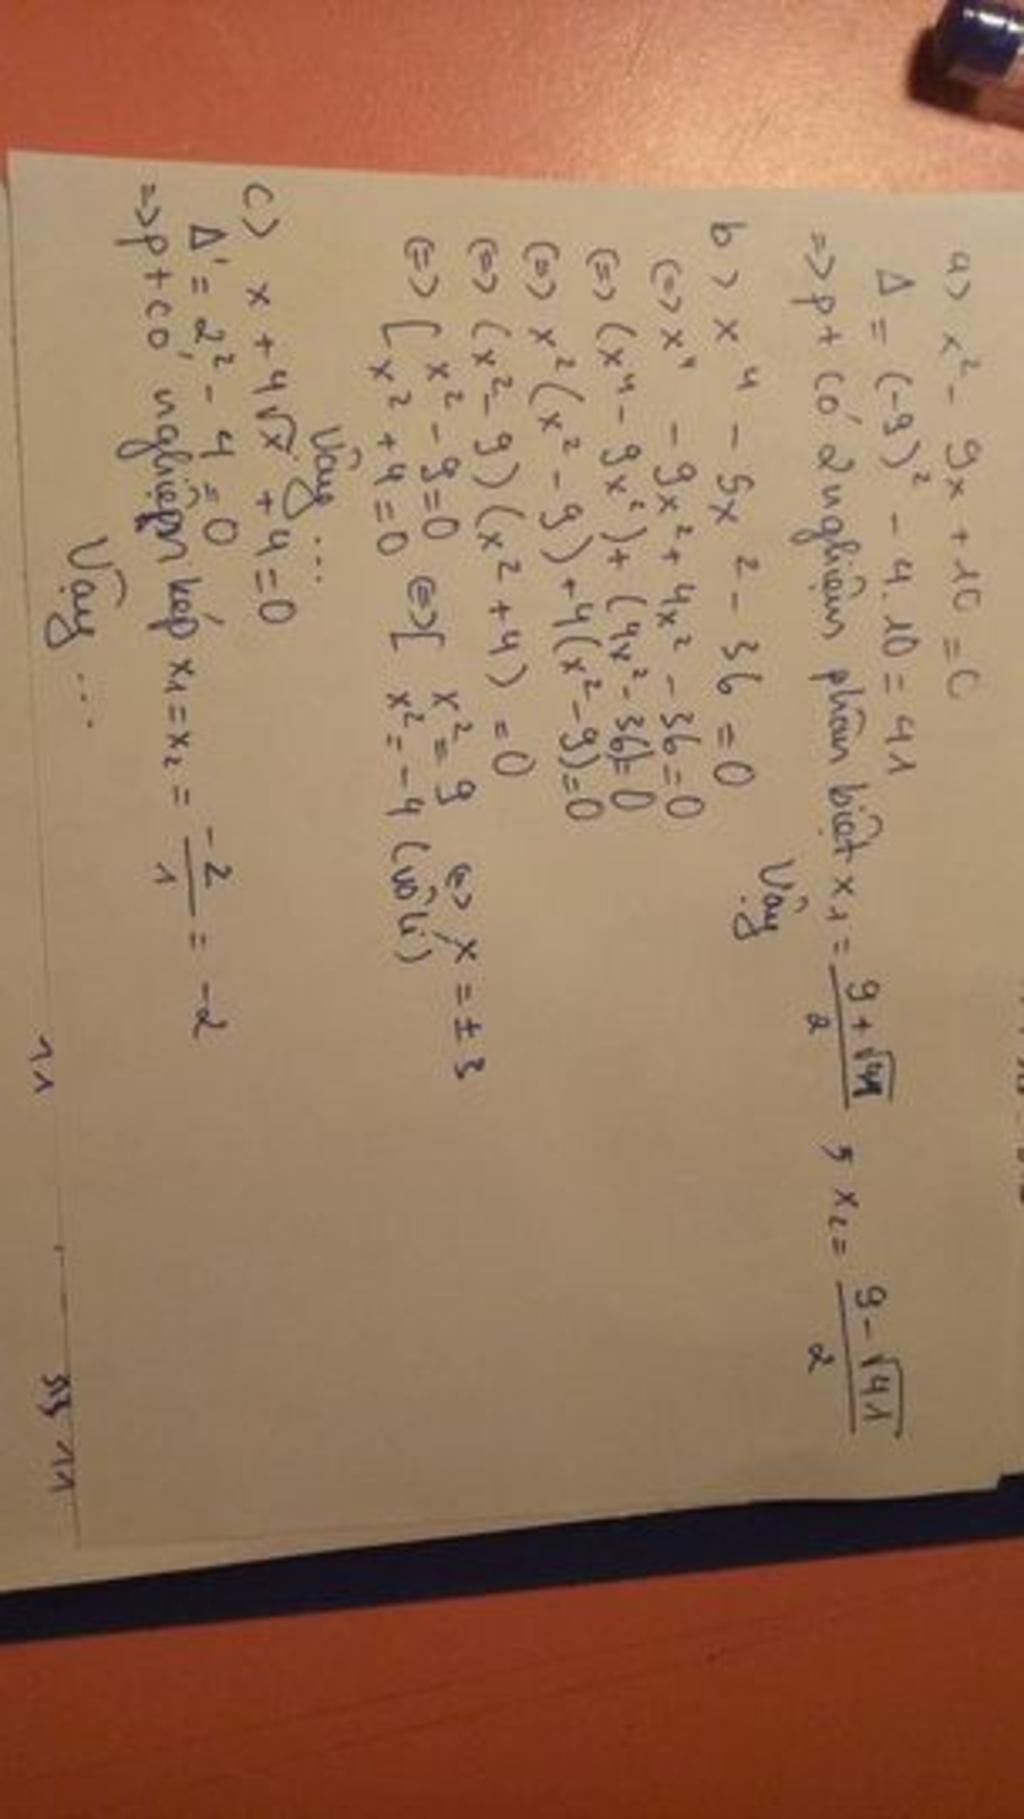 a) x² - 9x + 10 = 0
Δ = (-9)² - 4.10 = 41
=> pt có 2 nghiệm phân biệt x₁ = (9+√41)/2 , x₂ = (9-√41)/2
Vậy
b) x⁴ - 5x² - 36 = 0
<=> x⁴ - 9x² + 4x² - 36 = 0
<=> (x⁴ - 9x²) + (4x² - 36) = 0
<=> x²(x² - 9) + 4(x² - 9) = 0
<=> (x² - 9)(x² + 4) = 0
<=> [ x² - 9 = 0 <=> [ x² = 9 <=> x = ± 3
x² + 4 = 0 x² = -4 (vô lí)
Vậy ...
c) x + 4√x + 4 = 0
Δ' = 2² - 4 = 0
=> pt có nghiệm kép x₁ = x₂ = -2/1 = -2
Vậy ...
11